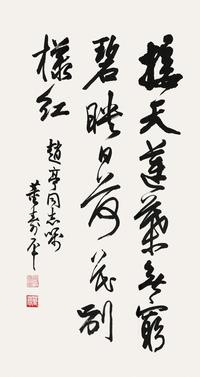 接天莲叶无穷
碧映日荷花别
样红
赵亭同志嘱
董寿平